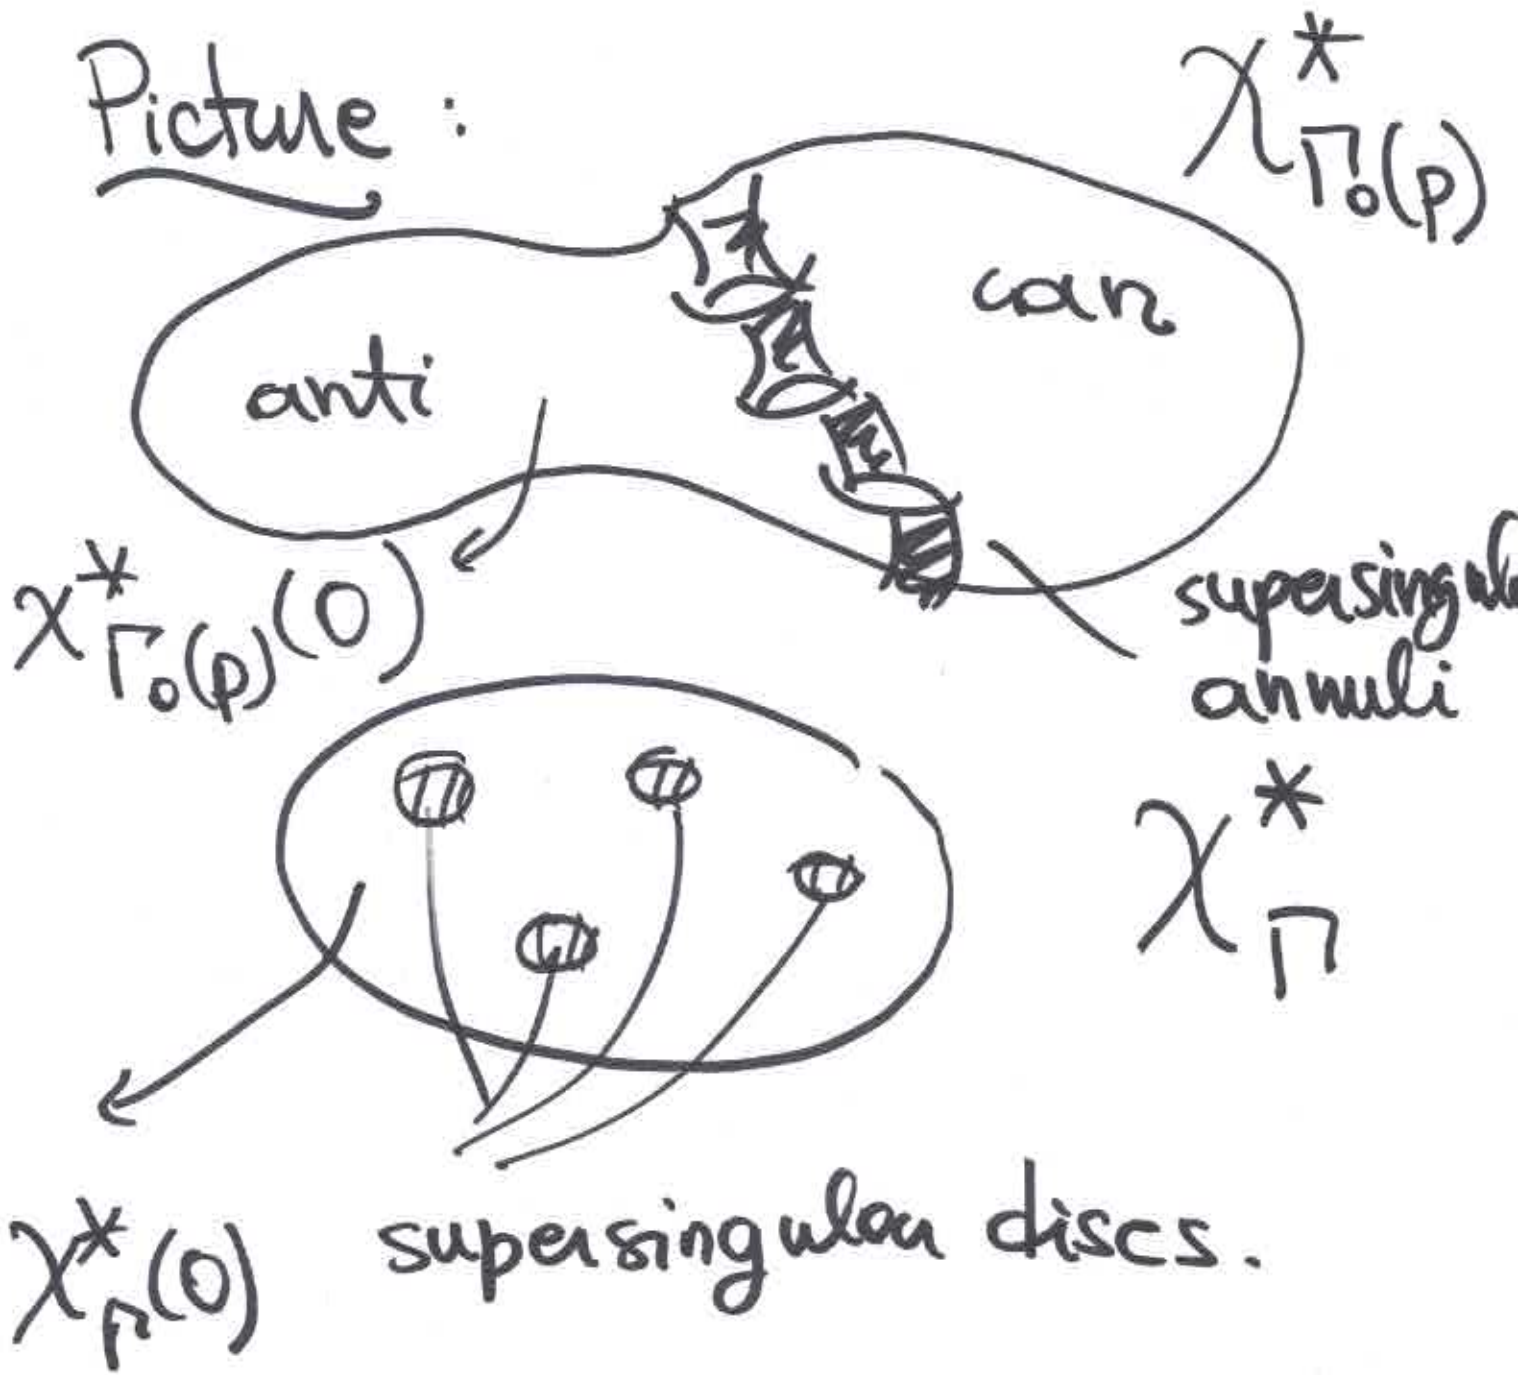 Picture :
X*_Γ₀(p)
can
anti
X*_Γ₀(p)(0)
supersingular
annuli
X*_Γ
X*_Γ(0)
supersingular discs.